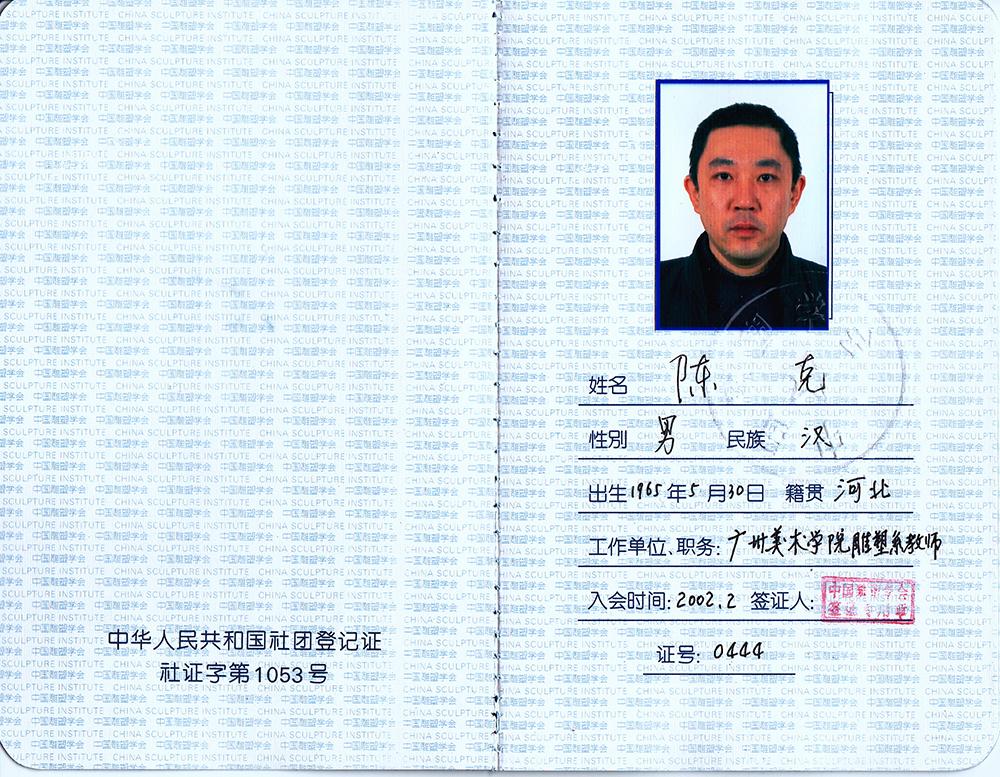 中华人民共和国社团登记证
社证字第1053号
姓名 陈克
性别 男 民族 汉
出生1965年5月30日 籍贯 河北
工作单位、职务: 广州美术学院雕塑系教师
入会时间: 2002.2 签证人:
证号: 0444